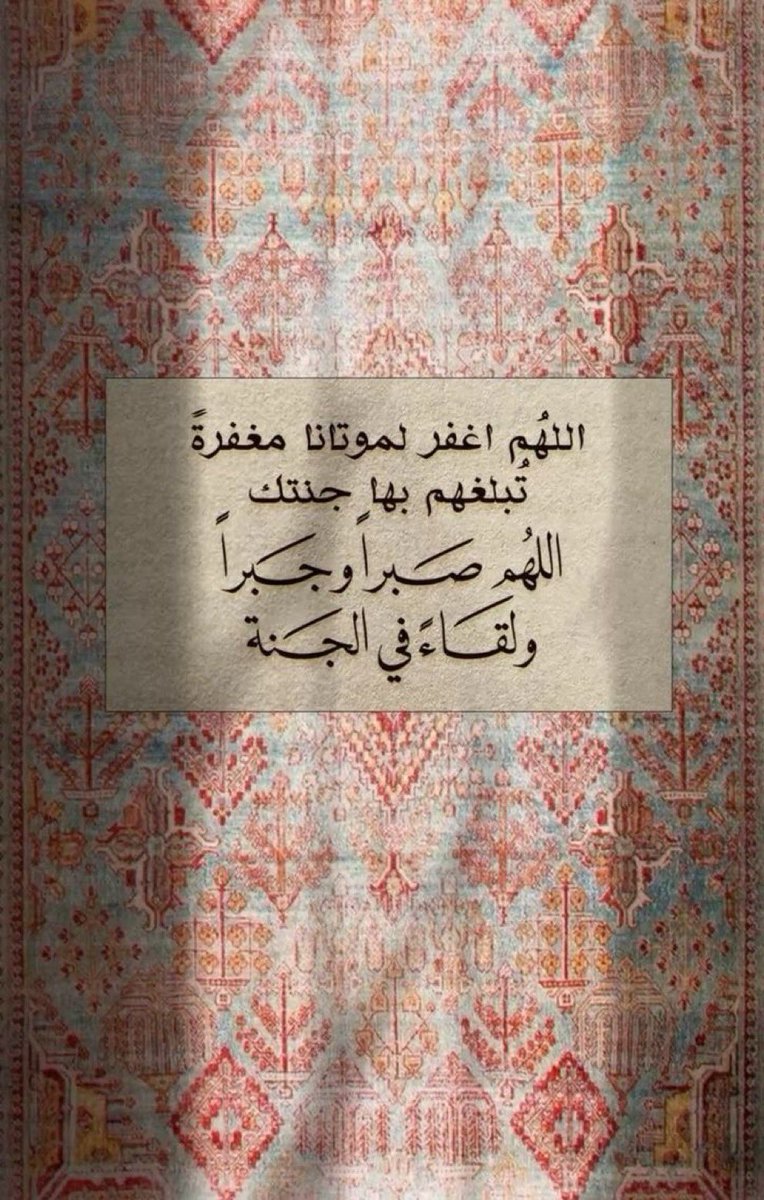 اللهُم اغفر لموتانا مغفرةً
تُبلغهم بها جنتك
اللهُم صَبراً وجَبراً
ولقَاءً في الجَنة